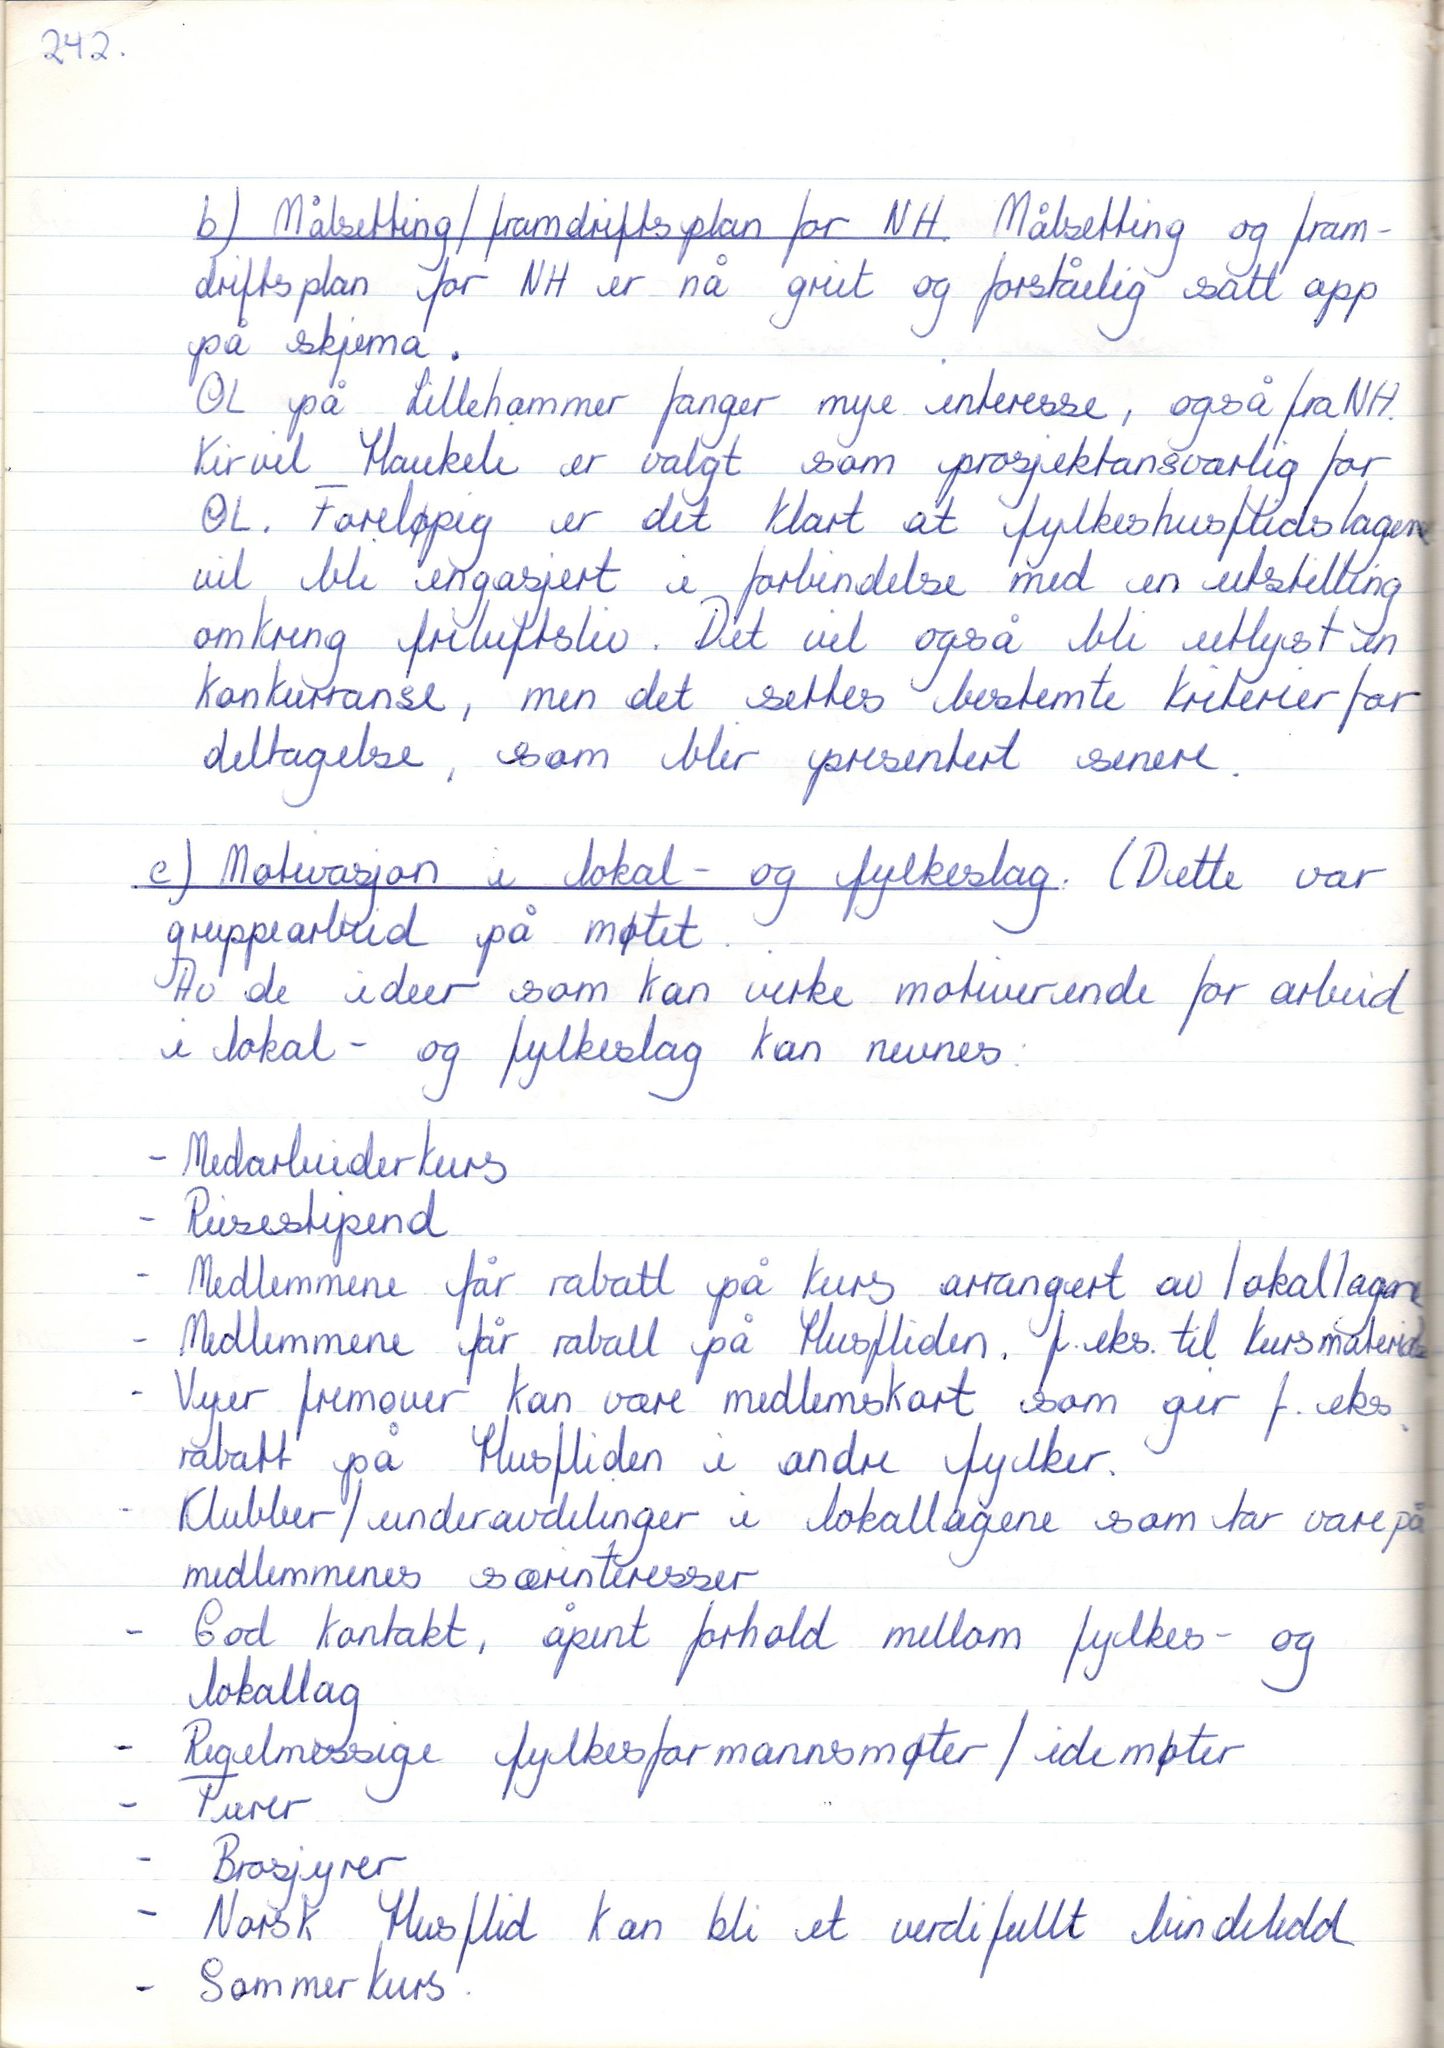 242.
b) Målsetting/framdriftsplan for NH. Målsetting og fram-
driftsplan for NH er nå greit og forståelig satt opp
på skjema.
OL på Lillehammer fanger mye interesse, også fra NH.
Kirvil Haukeli er valgt som prosjektansvarlig for
OL. Foreløpig er det klart at fylkeshusflidslagene
vil bli engasjert i forbindelse med en utstilling
omkring friluftsliv. Det vil også bli utlyst en
konkurranse, men det settes bestemte kriterier for
deltagelse, som blir presentert senere.
c) Motivasjon i lokal- og fylkeslag. (Dette var
gruppearbeid på møtet.
Av de ideer som kan virke motiverende for arbeid
i lokal- og fylkeslag kan nevnes:
- Medarbeiderkurs
- Reisestipend
- Medlemmene får rabatt på kurs arrangert av lokallagene
- Medlemmene får rabatt på Husfliden. f.eks. til kursmateriale
- Veier fremover kan være medlemskort som gir f.eks.
rabatt på Husfliden i andre fylker.
- Klubber/underavdelinger i lokallagene som tar vare på
medlemmenes særinteresser
- God kontakt, åpent forhold mellom fylkes- og
lokallag
- Regelmessige fylkesformannsmøter/idemøter
- Turer
- Brosjyrer
- Norsk Husflid kan bli et verdifullt bindeledd
- Sommerkurs.